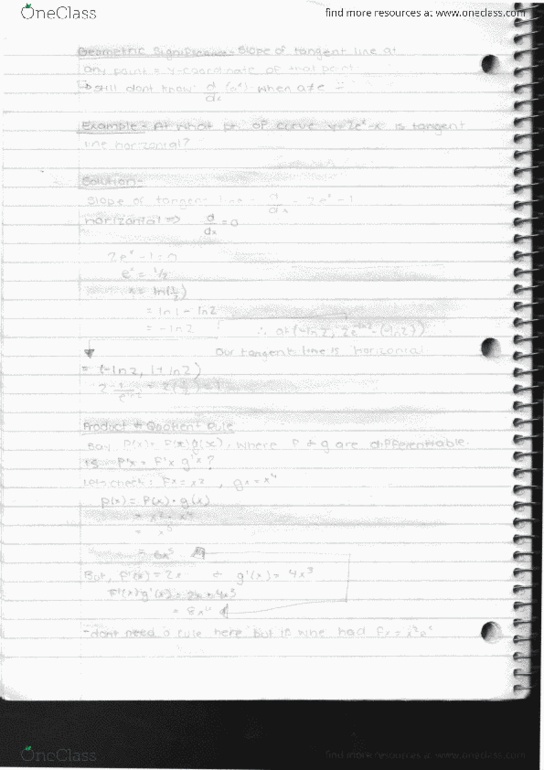 OneClass
find more resources at www.oneclass.com
Geometric Significance - Slope of tangent line at
any point = y-coordinate of that point
→ still dont know d/dx (aˣ) when a≠e
Example - At what pt. of curve y=2eˣ-x is tangent
line horizontal?
Solution-
Slope of tangent line = /dx = 2eˣ-1
horizontal => d/dx = 0
2eˣ-1=0
eˣ = 1/2
x = ln(1/2)
= ln1 - ln2
= -ln2 ∴ at (-ln2, 2e^-ln2 - (-ln2))
our tangent line is horizontal
= (-ln2, 1+ln2)
Product & Quotient Rule
Say P(x) = F(x)g(x), where F & g are differentiable.
Is P'x = F'x g'x?
Lets check: Fx = x², gx = x⁴
p(x) = F(x)·g(x)
= x²·x⁴
= x⁶
= 6x⁵
But, F'(x) = 2x & g'(x) = 4x³
F'(x)g'(x) = 2x·4x³
= 8x⁴
-dont need a rule here but if we had Fx = x²eˣ
OneClass
find more resources at www.oneclass.com